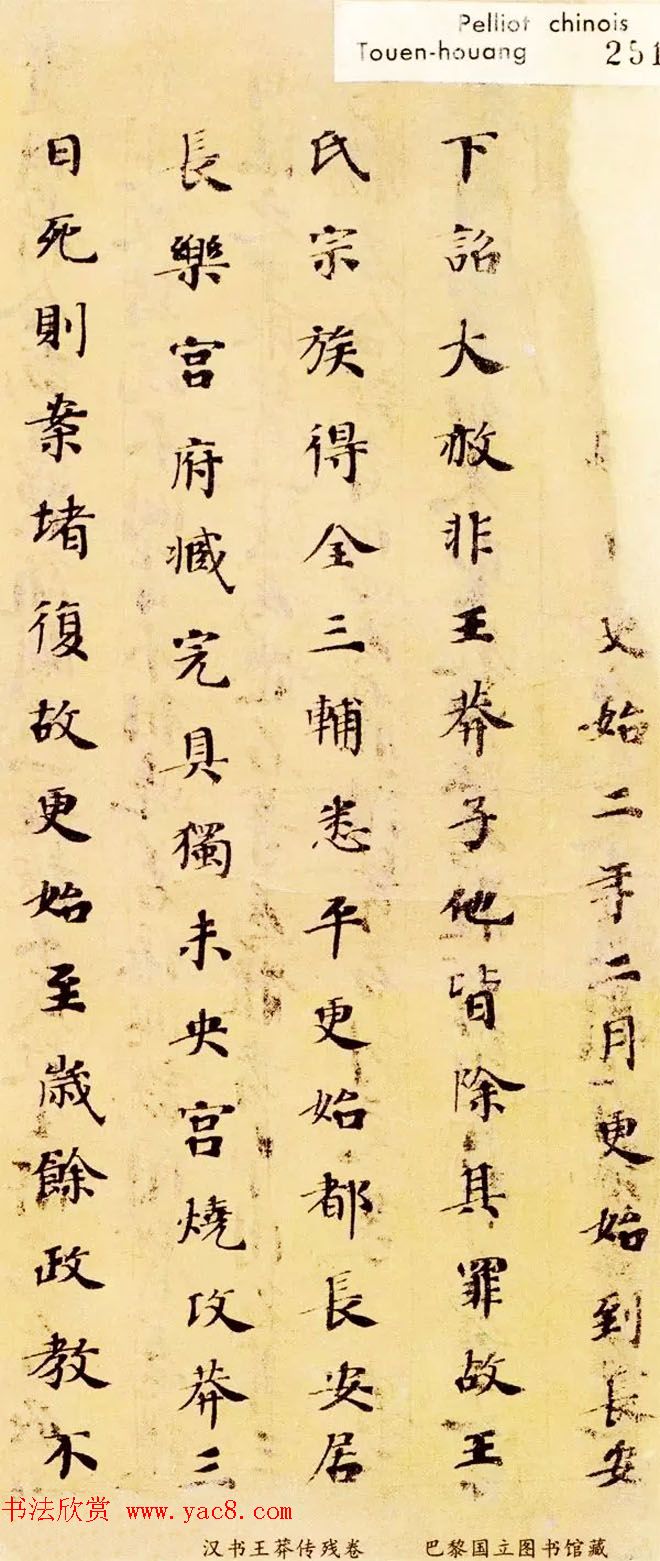 Pelliot chinois
Touen-houang 251
始二年二月更始到長安
下詔大赦非王莽子他皆除其罪故王
氏宗族得全三輔悉平更始都長安居
長樂宮府臧完具獨未央宮燒攻莽三
日死則案堵復故更始至歲餘政教不
书法欣赏 www.yac8.com
汉书王莽传残卷 巴黎国立图书馆藏